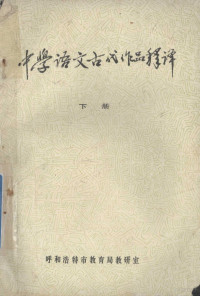 中學语文古代作品释译
下册
呼和浩特市教育局教研室